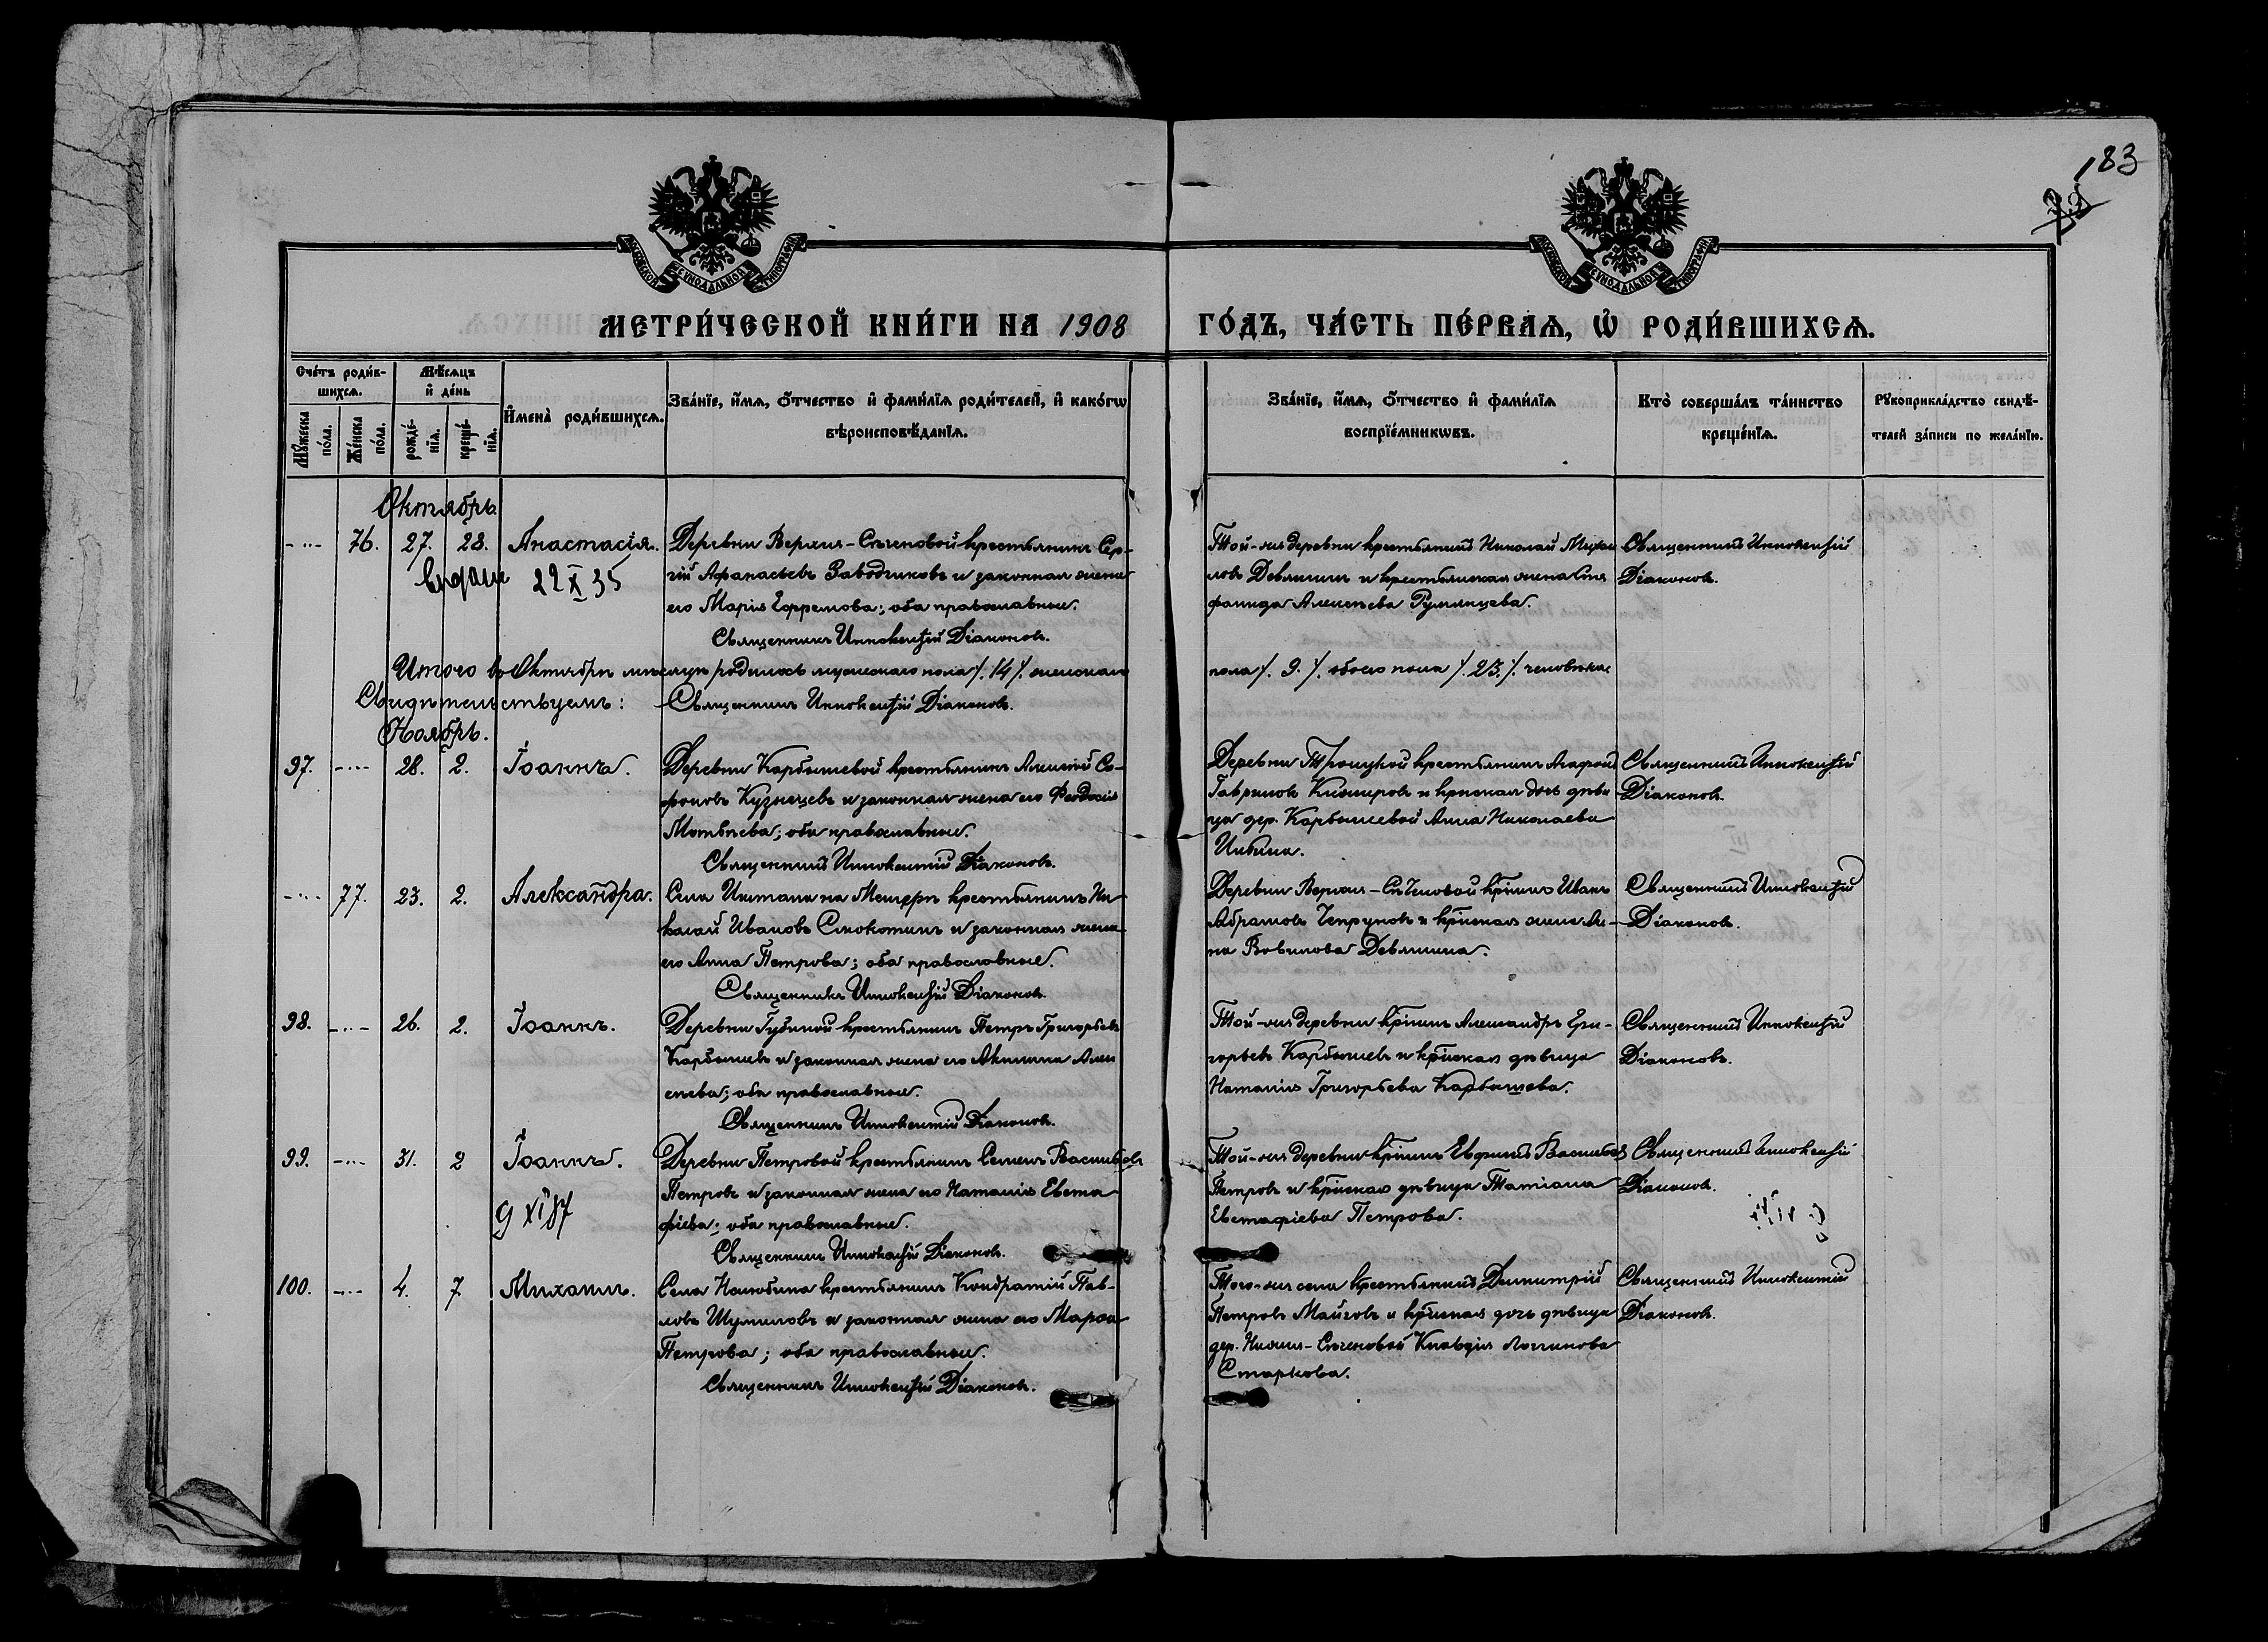 183
МЕТРИ́ЧЕСКОЙ КНИ́ГИ НА 1908 ГО́ДЪ, ЧА́СТЬ ПЕ́РВАѦ, Ѡ РОДИ́ВШИХСѦ.
Сче́тъ роди́в-
шихсѧ.
Мѹ́жеска
по́ла.
Же́нска
по́ла.
Мѣ́сѧцъ
и҆ де́нь
рожде́-
нїѧ.
креще́-
нїѧ.
И҆мена̀ роди́вшихсѧ.
Зва́нїе, и҆́мѧ, ѻ҆́тчество и҆ фами́лїѧ роди́телей, и҆ како́гѡ
вѣроисповѣ́данїѧ.
Зва́нїе, и҆́мѧ, ѻ҆́тчество и҆ фами́лїѧ
воспрїе́мникѡвъ.
Кто̀ соверша́лъ та́инство
креще́нїѧ.
Рѹкоприкла́дство свидѣ́-
телей за́писи по жела́нїю.
Октябрь
76. 27. 28. Анастасія.
22 X 35
Деревни Верхня-Сѣченовой крестьянинъ Сер-
гій Афанасьевъ Заводчиковъ и законная жена
его Марія Ефремова; оба православные.
Священникъ Иннокентій Діаконовъ.
Той-же деревни крестьянинъ Николай Михаи
ловъ Девяшинъ и крестьянская жена Сте
фанида Алексѣева Румянцева.
Священникъ Иннокентій
Діаконовъ.
Итого въ Октябрѣ мѣсяцѣ родилось мужескаго пола /. 14 /. женскаго
пола /. 9. /. обоего пола /. 23. /. человѣка
Свидѣтельствуемъ: Священникъ Иннокентій Діаконовъ.
Ноябрь.
97. 28. 2. Іоаннъ.
Деревни Карбышевой крестьянинъ Алексѣй Со-
фоновъ Кузнецовъ и законная жена его Феодосія
Матвѣева; оба православные.
Священникъ Иннокентій Діаконовъ.
Деревни Троицкой крестьянинъ Агафонъ
Гавриловъ и крнская дочь дѣви
ца дер. Карбышевой Анна Николаева
Священникъ Иннокентій
Діаконовъ.
77. 23. 2. Александра.
Села крестьянинъ Ни-
колай Ивановъ Смокотинъ и законная жена
его Анна Петрова; оба православные.
Священникъ Иннокентій Діаконовъ.
Деревни Верхня-Сѣченовой крнинъ Иванъ
Абрамовъ Чепруновъ и крнская жена Ан-
на Вавилова Девяшина.
Священникъ Иннокентій
Діаконовъ.
98. 26. 2. Іоаннъ.
Деревни Губиной крестьянинъ Петръ Григорьевъ
Карбышевъ и законная жена его Акилина Алек
сѣева; оба православные.
Священникъ Иннокентій Діаконовъ.
Той-же деревни крнинъ Александръ Гри-
горьевъ Карбышевъ и крнская дѣвица
Наталія Григорьева Карбышева.
Священникъ Иннокентій
Діаконовъ.
99. 31. 2 Іоаннъ.
9 XI 87
Деревни Петровой крестьянинъ Семенъ Васильевъ
Петровъ и законная жена его Наталія Евста
фіева; оба православные.
Священникъ Иннокентій Діаконовъ.
Той-же деревни крнинъ Евфимій Васильевъ
Петровъ и крнская дѣвица Татіана
Евстафіева Петрова.
Священникъ Иннокентій
Діаконовъ.
100. 4. 7 Михаилъ.
Села Налюбина крестьянинъ Кондратій Пав-
ловъ Шумиловъ и законная жена его Марѳа
Петрова; оба православные.
Священникъ Иннокентій Діаконовъ.
Того-же села крестьянинъ Димитрій
Петровъ Майговъ и крнская дочь дѣвица
дер. Нижня-Сѣченовой Клавдія Логинова
Старкова.
Священникъ Иннокентій
Діаконовъ.